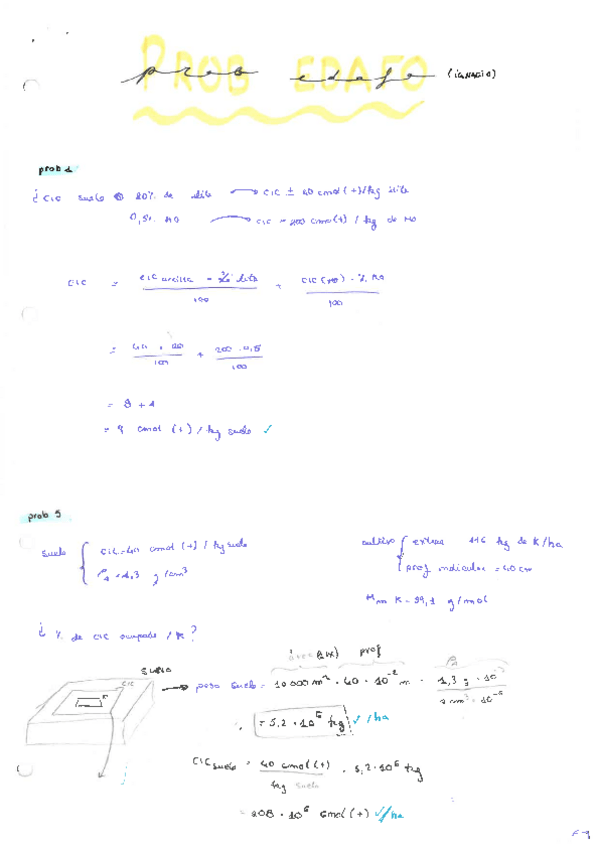 PROB EDAFO
prob edafo (IGNACIO)
prob 1
¿CIC suelo 20% de ilita → CIC ± 40 cmol(+)/kg ilita
0,5% MO → CIC = 200 cmol(+) / kg de MO
CIC = CIC arcilla · % ilita / 100 + CIC (MO) · % MO / 100
= 40 · 20 / 100 + 200 · 0,5 / 100
= 8 + 1
= 9 cmol (+) / kg suelo ✓
prob 5
suelo { CIC = 40 cmol (+) / kg suelo
1,3 g/cm³
cultivo { extrae 116 kg de K/ha
prof radicular = 40 cm
Mm K = 39,1 g/mol
¿ % de CIC ocupada / K ?
área (1 ha) prof
SUELO
CIC
K
→ peso suelo = 10000 m² · 40 · 10⁻² m · 1,3 g · 10⁻³ / 1 cm³ · 10⁻⁶
= 5,2 · 10⁶ kg ✓ /ha
CIC suelo = 40 cmol (+) / kg suelo · 5,2 · 10⁶ kg
= 208 · 10⁶ cmol (+) ✓/ha